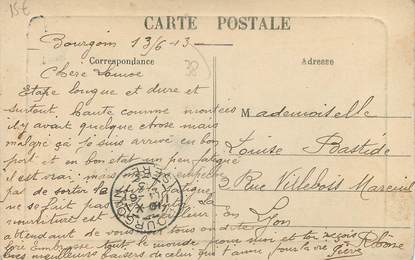 15€
CARTE POSTALE
Bourgoin 13/6-13
38
Correspondance
Adresse
Chère Louise
Etape longue et dure et
surtout haute comme montées
il y avait quelque chose mais
malgré ça Je suis arrivé en bon
port et en bon état un peu fatigué
il est vrai mais
pas de sortir la
ne se fait pas
nourriture est
attendant de vous
Embrasse tout le monde pour moi et toi reçois
les meilleurs baisers de celui que t'aime pour la vie
Mademoiselle
Louise Bastide
3 Rue Villebois Mareuil
Lyon
Rhône
BOURGOIN
ISERE